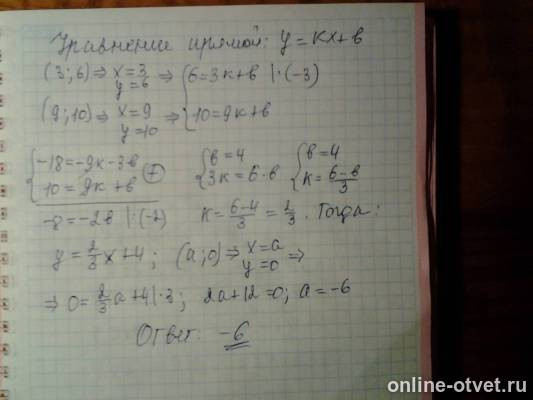 Уравнение прямой: y = kx + b
(3;6) ⇒ x=3 y=6 ⇒ { 6=3k+b |·(-3)
(9;10) ⇒ x=9 y=10 ⇒ 10=9k+b
{ -18=-9k-3b
10=9k+b (+)
-8=-2b |:(-2)
{ b=4
3k=6-b
{ b=4
k=(6-b)/3
k=(6-4)/3=2/3. Тогда:
y=2/3x+4; (a;0) ⇒ x=a y=0 ⇒
⇒ 0=2/3a+4|·3; 2a+12=0; a=-6
Ответ: -6
online-otvet.ru